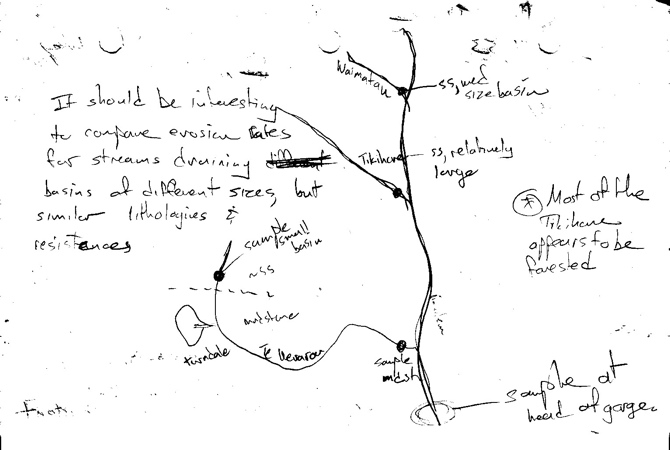 It should be interesting
to compare erosion rates
for streams draining
basins of different sizes, but
similar lithologies &
resistances
Waimatau
ss, med
size basin
Tikihore
ss, relatively
large
* Most of the
Tikihore
appears to be
forested
sample
small
basin
~ss
mudstone
turndale
Te
sample
mdst
sample at
head of gorge